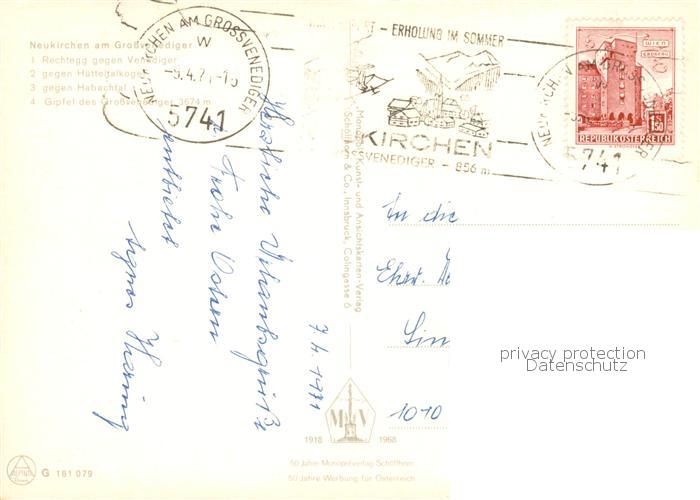 Neukirchen am Großvenediger
1 Rechtegg gegen Venediger
2 gegen Hütteltalkogel
3 gegen Habachtal
4 Gipfel des Großvenediger 3674 m
NEUKIRCHEN AM GROSSVENEDIGER
W
5741
- ERHOLUNG IM SOMMER
KIRCHEN
VENEDIGER - 856 m
WIEN
ERDBERG
1.50
REPUBLIK ÖSTERREICH
5741
Herzliche Urlaubsgrüße
Frohe Ostern
entbietet
Agnes
7.4.1971
Monopol Kunst- und Ansichtskarten-Verlag
Schöllhorn & Co., Innsbruck, Colingasse 6
An die
Ehrw.
Lin
1010
privacy protection
Datenschutz
M V
1918
1968
50 Jahre Monopolverlag Schöllhorn
50 Jahre Werbung für Österreich
G 181 079